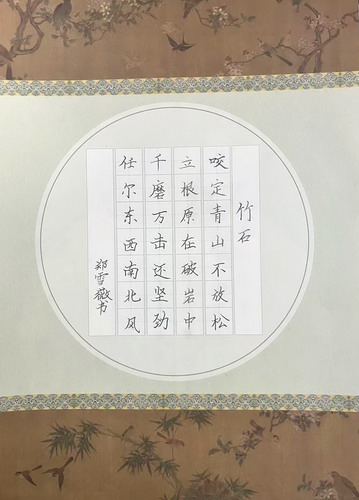 竹石
咬定青山不放松
立根原在破岩中
千磨万击还坚劲
任尔东西南北风
郑雪薇书